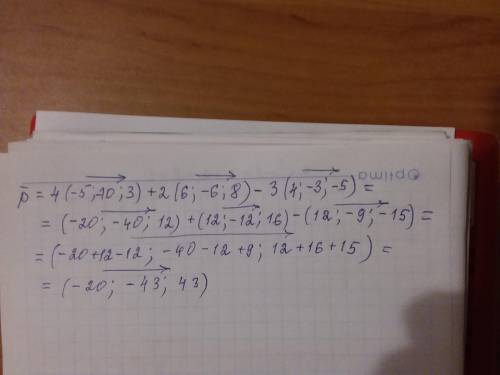 Optima
p̄ = 4(-5; 10; 3) + 2(6; -6; 8) - 3(4; -3; -5) =
= (-20; -40; 12) + (12; -12; 16) - (12; -9; -15) =
= (-20+12-12; -40-12+9; 12+16+15) =
= (-20; -43; 43)